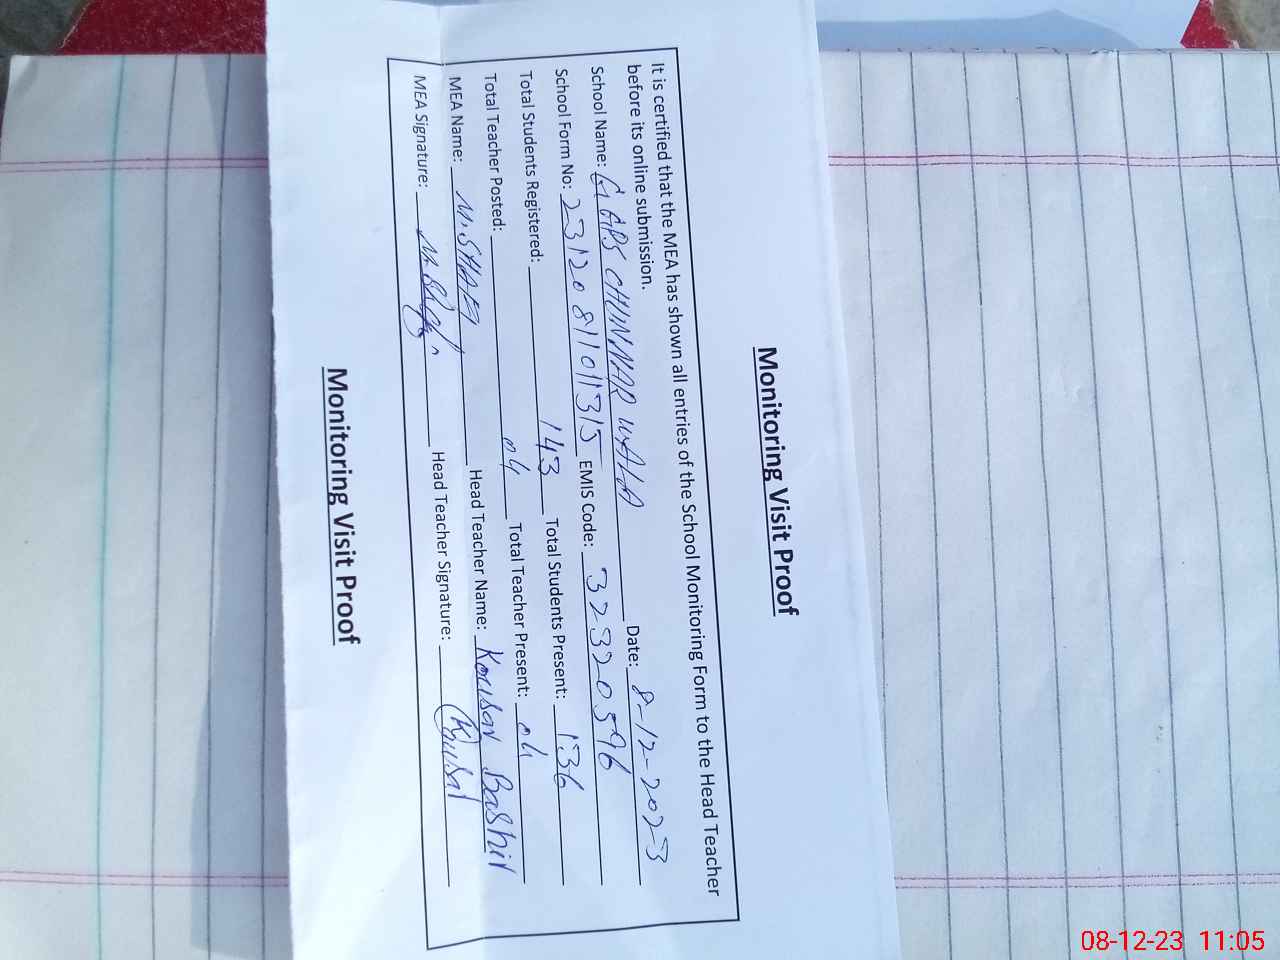 Monitoring Visit Proof
It is certified that the MEA has shown all entries of the School Monitoring Form to the Head Teacher
before its online submission.
School Name: GGPS CHUNNAR WALA Date: 8-12-2023
School Form No: 23120811011315 EMIS Code: 32320596
Total Students Registered: 143 Total Students Present: 136
Total Teacher Posted: 04 Total Teacher Present: 04
MEA Name: M. SHAFI Head Teacher Name: Kousar Bashir
MEA Signature: M. Shafi Head Teacher Signature: Kousar
Monitoring Visit Proof
08-12-23 11:05